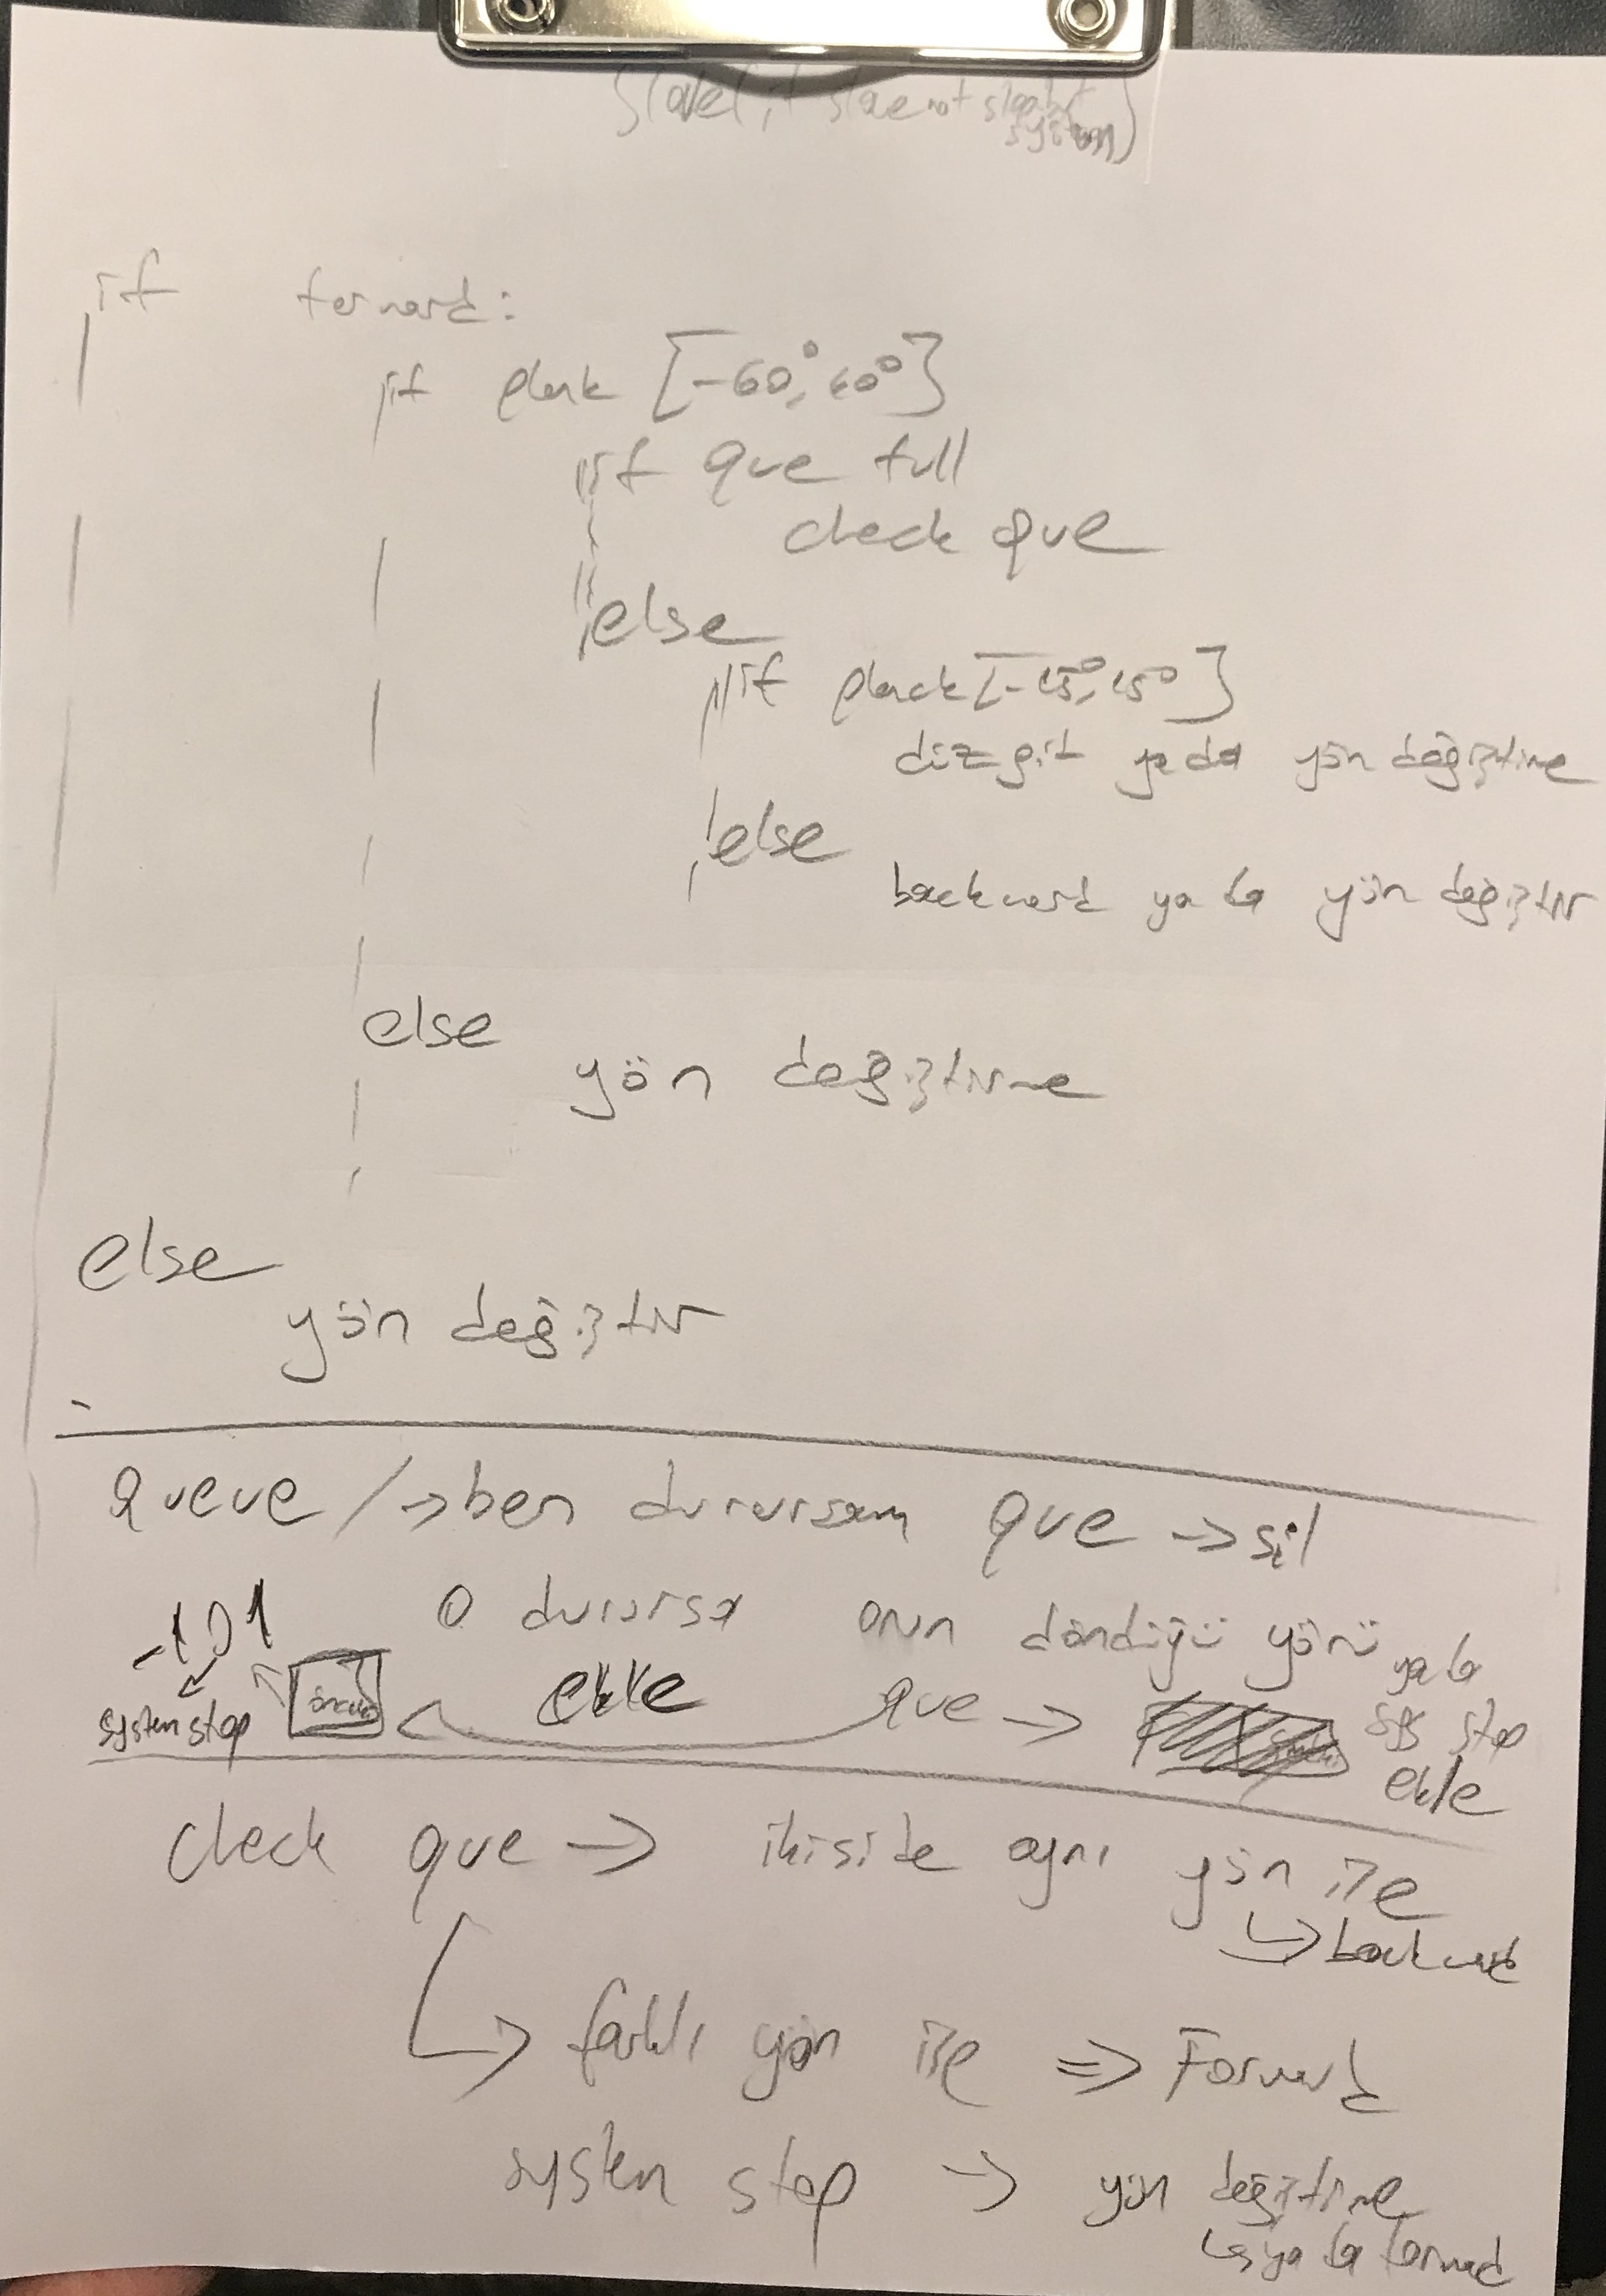 if forward:
if plank [-60°, 60°]
if que full
check que
else
if plack [-15°, 15°]
düz git ya da yön değiştirme
else
backward ya da yön değiştir
else
yön değiştirme
else
yön değiştir
queue / → ben durursam que → sil
-1 0 1 o durursa onun döndüğü yönü ya da
system stop ekle que → sys stop
ekle
check que → ikiside aynı yön ise
↳ backward
↳ farklı yön ise ⇒ Forward
system stop → yön değiştirme
↳ ya da forward